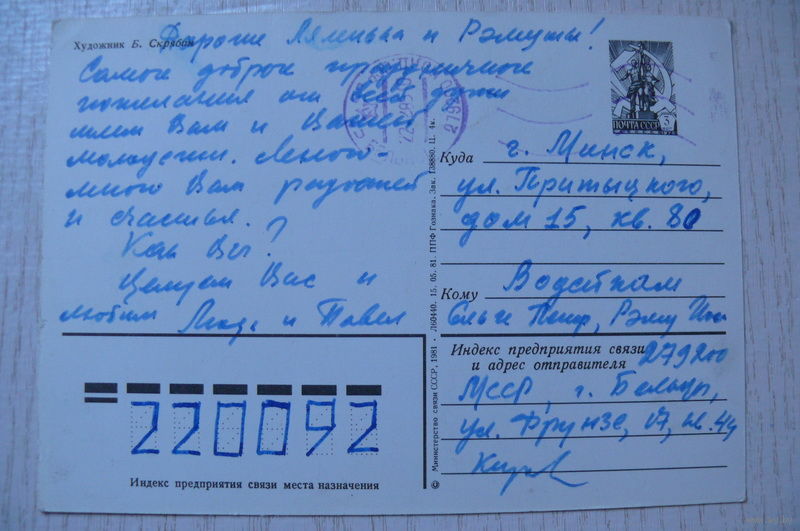 Художник Б. Скрябин
Дорогие Лялинька и Рэмуты!
Самые добрые праздничные
пожелания от всей души
шлем Вам и Вашей
молодежи. Много-
много Вам радостей
и счастья.
Как Вы?
Целуем Вас и
любим Люда и Павел
ПОЧТА СССР 3
279200
Куда г. Минск,
ул. Притыцкого,
дом 15, кв. 80
Кому
Ольге Петр, Рэму
Индекс предприятия связи 279200
и адрес отправителя
МССР, г. Бельцы,
ул. Фрунзе, 17, кв. 44
220092
Индекс предприятия связи места назначения
© Министерство связи СССР, 1981 • Л60440. 15. 05. 81. ППФ Гознака. Зак. 138880. Ц. 4к.